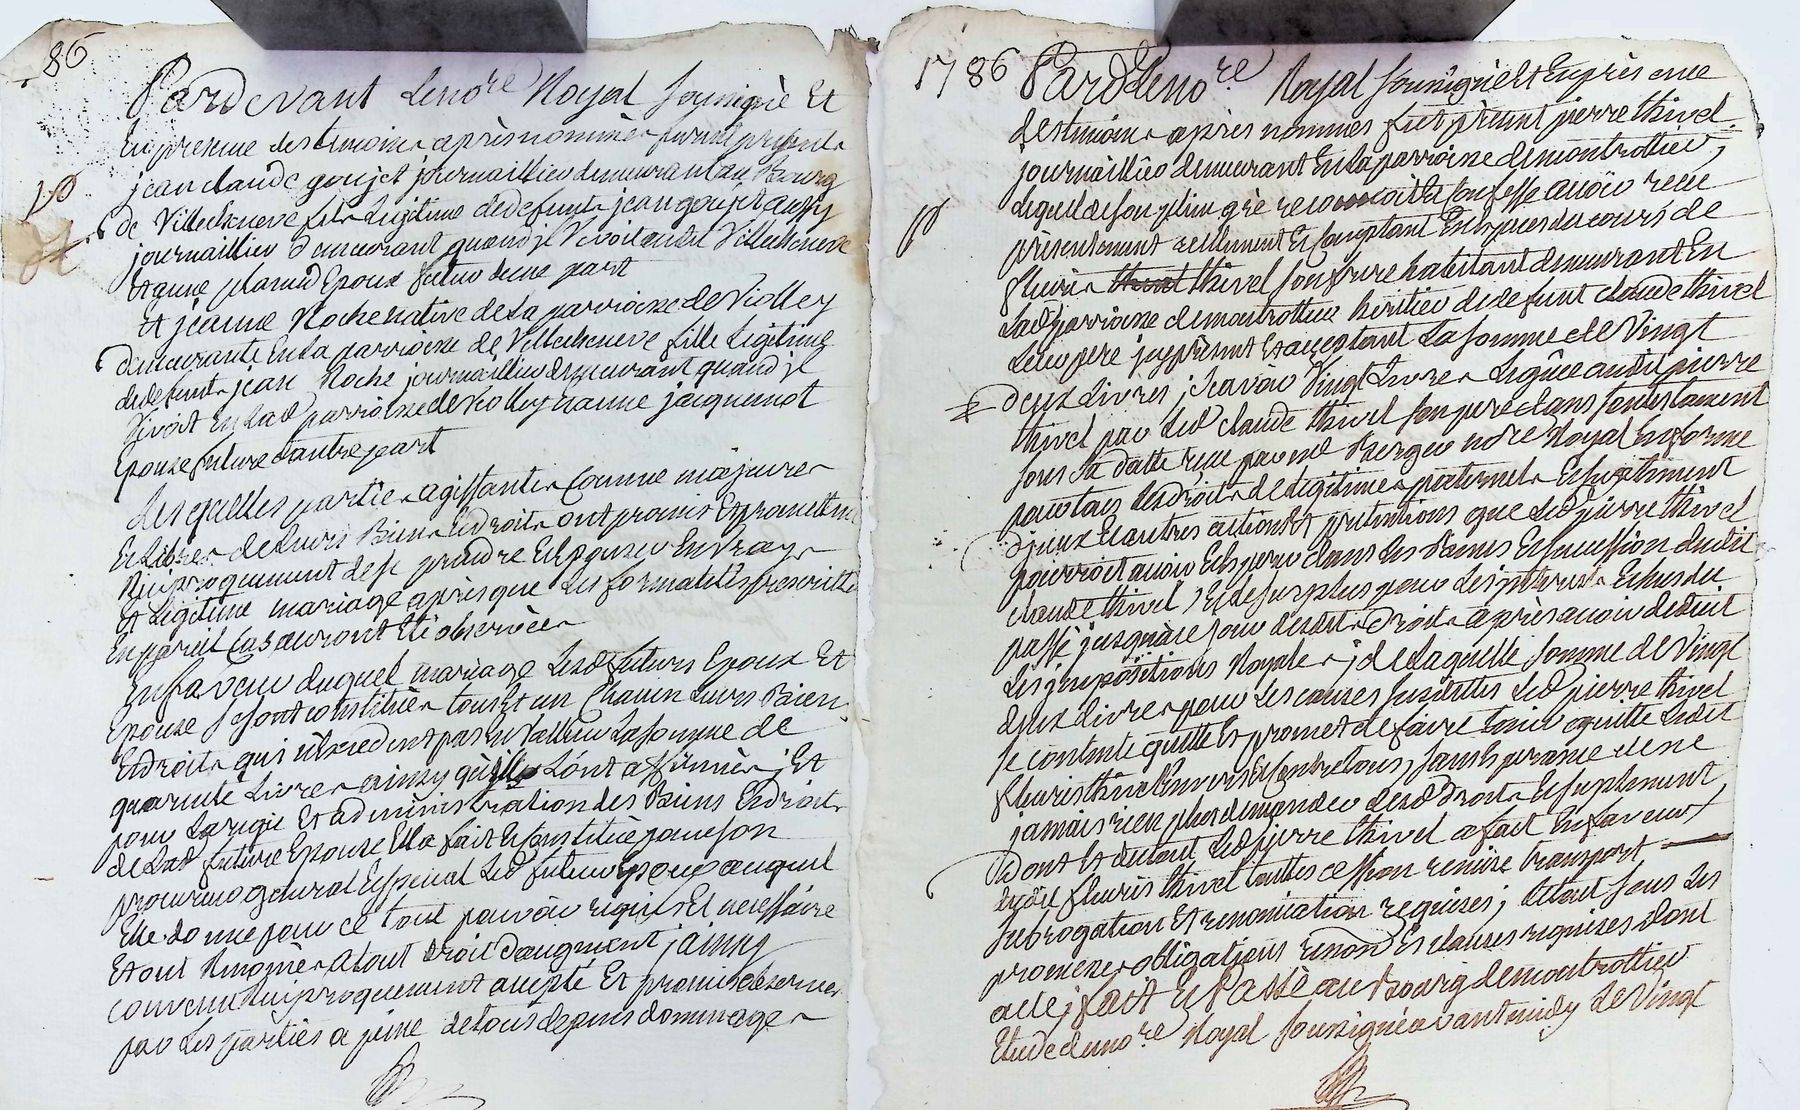 86
Pardevant Le no.re Royal soussigné Et
En presence des temoins apres nommés furent presents
jean claude goujet journaillier demeurant au Bourg
de Villecheneve fils Legitime de defunts jean goujet aussy
journaillier demeurant quand jl Vivoit audit Villecheneve
Et anne plasud Epoux futur dune part
Et jeanne Roche native de la parroisse de Violley
demeurante En la parroisse de Villecheneve fille Legitime
de defunts jean Roche journaillier demeurant quand jl
Vivoit En lad parroisse de Violley & anne jacquemot
Epouse future dautre part
Lesquelles parties agissantes comme majeures
Et Libres de Leurs Biens Et droits ont promis Et promettent
Reciproquement de se prendre Et Epouser En Vray
Et Legitime mariage apres que Les formalités prescrittes
En pareil Cas auront Eté observées
En faveur duquel mariage Lesd futurs Epoux Et
Epouse se sont constitués tous Et un Chacun Leurs Biens
Et droits qui n'Excedent pas En Valleur La somme de
quarente Livres ainsy qu'ils L'ont affirmé ; Et
pour La regie Et administration des Biens Et droits
de Lad future Epouse Elle fait Et constitue pour son
procureur general Et special Led futur Epoux auquel
Elle donne pour ce tout pouvoir requis Et necessaire
Et ont Renoncés a tout droit d'augment ; ainsy
convenu Reciproquement accepté Et promis observer
par Les parties a peine de tous depens dommages
1786
Pard Le no.re Royal soussigné Et En presence
des temoins apres nommés fut present pierre thivel
journaillier demeurant En la parroisse de montrottier ;
Lequel de son plein gré reconnoit & confesse avoir recu
presentement reellement Et comptant En Especes du cours de
fleuris thivel son frere habitant demeurant En
Lad parroisse de montrottier heritier de defunt claude thivel
Leur pere jcy present Et acceptant La somme de Vingt
deux Livres ; scavoir Vingt Livres Legüée audit pierre
thivel par Led claude thivel son pere dans son testament
sous sa datte recu par me Berger no.re Royal En forme
pour tous Les droits de Legitime paternels Et supplement
d'jceux Et autres actions Et pretentions que Led pierre thivel
pourroit avoir Et Esperer dans Les Biens Et succession dudit
claude thivel , Et le surplus pour Les jnterets Echus du
passé jusqu'a ce jour desdits droits apres avoir deduit
Les jmpositions Royales ; de Laquelle somme de Vingt
deux Livres pour Les causes susdittes Led pierre thivel
se contente quitte Et promet de faire tenir quitte Ledit
fleuris thivel Envers Et contre tous , sans Esperance de ne
jamais rien plus demander desd droits Et supplement
dont Et du tout Led pierre thivel a fait En faveur
dudit fleuris thivel touttes cession remise transport
subrogation Et renonciation requises ; Le tout sous Les
promesses obligations renon.on Et clauses requises dont
acte ; fait Et Passé au Bourg de montrottier
Etude du no.re Royal soussigné avant midy Le Vingt